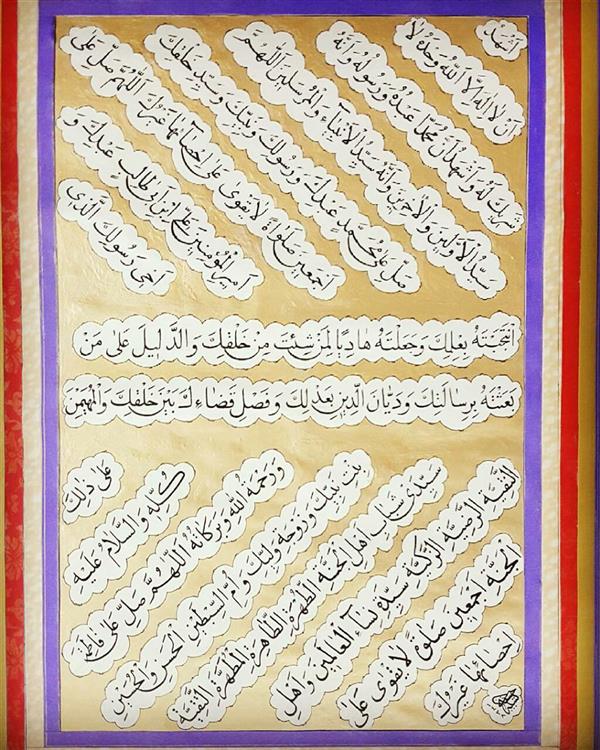 اَشْهَدُ
اَنْ لا اِلهَ اِلَّا اللهُ وَحْدَهُ لا
شَرِيكَ لَهُ وَاَشْهَدُ اَنَّ مُحَمَّدًا عَبْدُهُ وَرَسُولُهُ وَاَنَّهُ
سَيِّدُ الْاَوَّلِينَ وَالْآخِرِينَ وَاَنَّهُ سَيِّدُ الْاَنْبِيَاءِ وَالْمُرْسَلِينَ اَللّهُمَّ
صَلِّ عَلى مُحَمَّدٍ عَبْدِكَ وَرَسُولِكَ وَنَبِيِّكَ وَسَيِّدِ خَلْقِكَ
اَجْمَعِينَ صَلَواةً لا يَقْوى عَلى اِحْصَائِهَا غَيْرُكَ اَللّهُمَّ صَلِّ عَلى
اَمِيرِ الْمُؤْمِنِينَ عَلِيِّ ابْنِ اَبِي طَالِبٍ عَبْدِكَ وَ
اَخِي رَسُولِكَ الَّذِي
انْتَجَبْتَهُ بِعِلْمِكَ وَجَعَلْتَهُ هَادِيًا لِمَنْ شِئْتَ مِنْ خَلْقِكَ وَالدَّلِيلَ عَلى مَنْ
بَعَثْتَهُ بِرِسَالَتِكَ وَدَيَّانَ الدِّينِ بِعَدْلِكَ وَفَصْلِ قَضَاءِكَ بَيْنَ خَلْقِكَ وَالْمُهَيْمِنَ
عَلى ذلِكَ
كُلِّهِ وَالسَّلامُ عَلَيْهِ
وَرَحْمَةُ اللهِ وَبَرَكَاتُهُ اَللّهُمَّ صَلِّ عَلى فَاطِمَةَ
بِنْتِ نَبِيِّكَ وَزَوْجَةِ وَلِيِّكَ وَاُمِّ السِّبْطَيْنِ الْحَسَنِ وَالْحُسَيْنِ
سَيِّدَيْ شَبَابِ اَهْلِ الْجَنَّةِ الطُّهْرَةِ الطَّاهِرَةِ الْمُطَهَّرَةِ التَّقِيَّةِ
النَّقِيَّةِ الرَّضِيَّةِ الزَّكِيَّةِ سَيِّدَةِ نِسَاءِ الْعَالَمِينَ وَاَهْلِ
الْجَنَّةِ اَجْمَعِينَ صَلوةً لا يَقْوى عَلى
اِحْصَائِهَا غَيْرُكَ